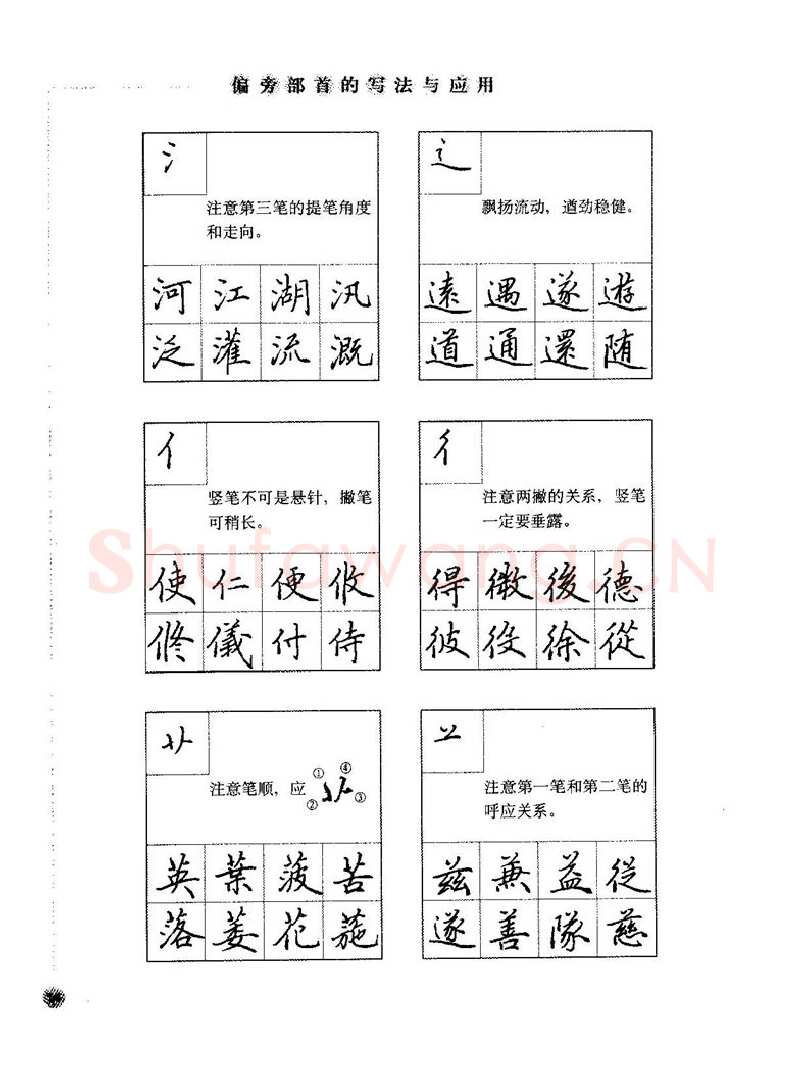 偏旁部首的写法与应用
氵
注意第三笔的提笔角度
和走向。
河江湖汎
泛灌流溉
辶
飘扬流动，遒劲稳健。
遠遇遂遊
道通還随
亻
竖笔不可是悬针，撇笔
可稍长。
使仁便攸
修儀付侍
彳
注意两撇的关系，竖笔
一定要垂露。
得徵後德
彼役徐從
注意笔顺，应①②③④
英葉菠苦
落萎花葹
注意第一笔和第二笔的
呼应关系。
兹兼益從
遂善隊慈
Shufawang.CN